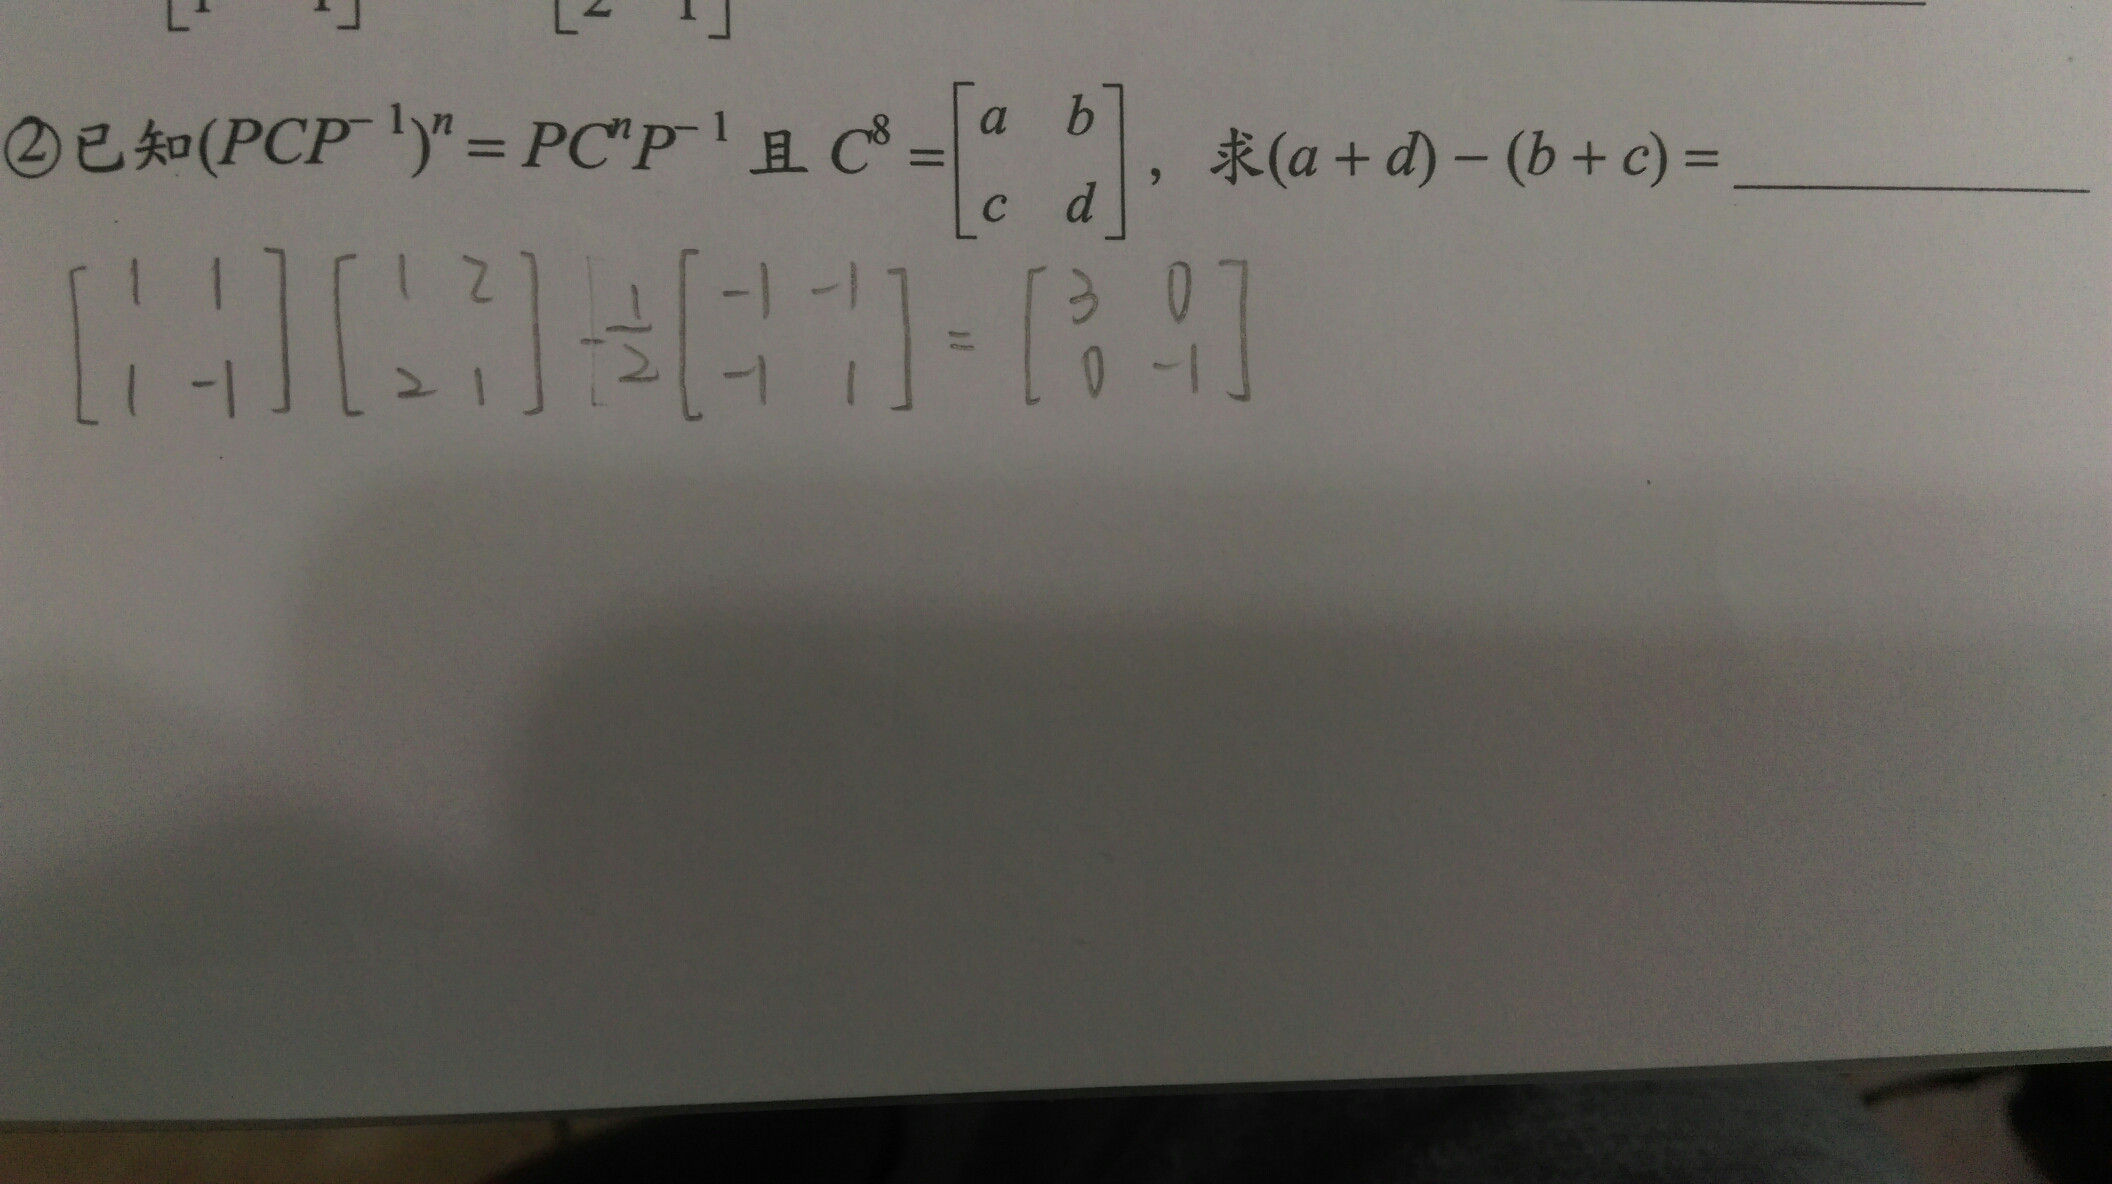 ② 已知(PCP⁻¹)ⁿ = PCⁿP⁻¹ 且 C⁸ = [a b; c d], 求(a + d) − (b + c) = ______
[1 1; 1 -1] [1 2; 2 1] -1/2 [-1 -1; -1 1] = [3 0; 0 -1]